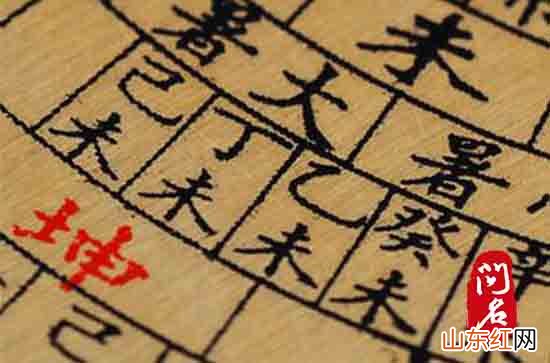 未
暑
大
暑
己未
丁未
乙未
癸未
辛
坤
己
问名
山东红网